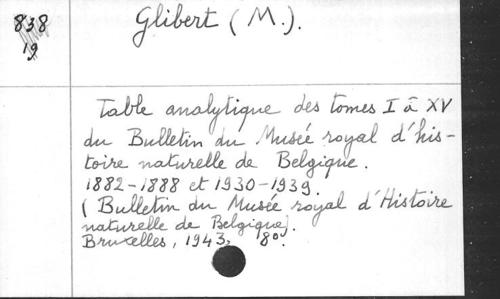 838
19
Glibert (M.).
Table analytique des tomes I à XV
du Bulletin du Musée royal d'his-
toire naturelle de Belgique.
1882-1888 et 1930-1939.
(Bulletin du Musée royal d'Histoire
naturelle de Belgique).
Bruxelles, 1943, 8°.